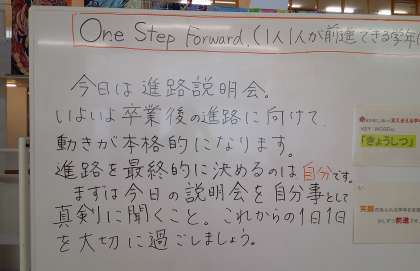 One Step Forward.(1人1人が前進できる学年
今日は進路説明会。
いよいよ卒業後の進路に向けて、
動きが本格的になります。
進路を最終的に決めるのは自分です。
まずは今日の説明会を自分事として
真剣に聞くこと。これからの1日1日
を大切に過ごしましょう。
「きょうしつ」
笑顔
前進